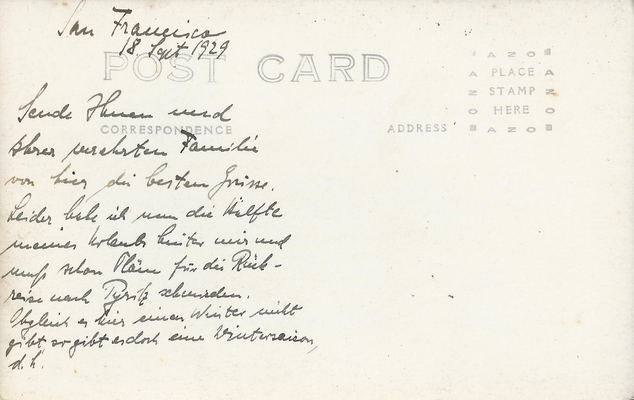 San Francisco
18. Sept 1929
POST CARD
AZO
PLACE
STAMP
HERE
AZO
AZO
AZO
CORRESPONDENCE
ADDRESS
Sende Ihnen und
Ihrer verehrten Familie
von hier die besten Grüsse.
Leider habe ich nun die Hälfte
meines Urlaubs hinter mir und
muß schon Pläne für die Rück-
reise nach Pyritz schmieden.
Obgleich es hier einen Winter nicht
gibt so gibt es doch eine Wintersaison,
d.h.